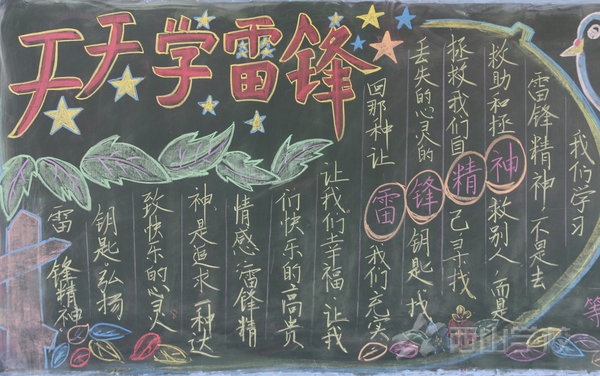 天天学雷锋
我们学习
雷锋精神不是去
救助和拯救别人,而是
拯救我们自己寻找
丢失的心灵的钥匙,找
回那种让我们充实
雷锋精神
让我们幸福,让我
们快乐的高贵
情感;雷锋精
神是追求一种达
致快乐的心灵
钥匙;弘扬
雷锋精神